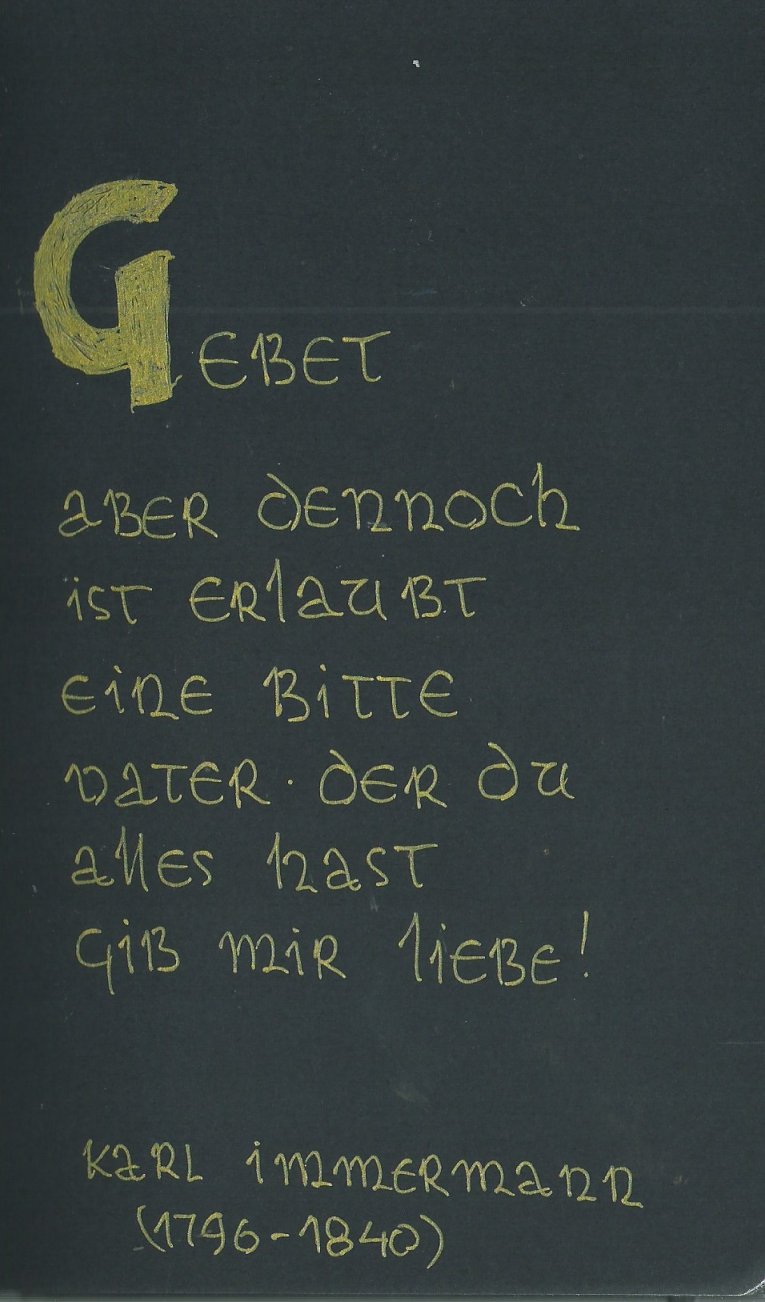 GEBET
ABER DENNOCH
IST ERLAUBT
EINE BITTE
VATER · DER DU
ALLES HAST
GIB MIR LIEBE!
KARL IMMERMANN
(1796-1840)